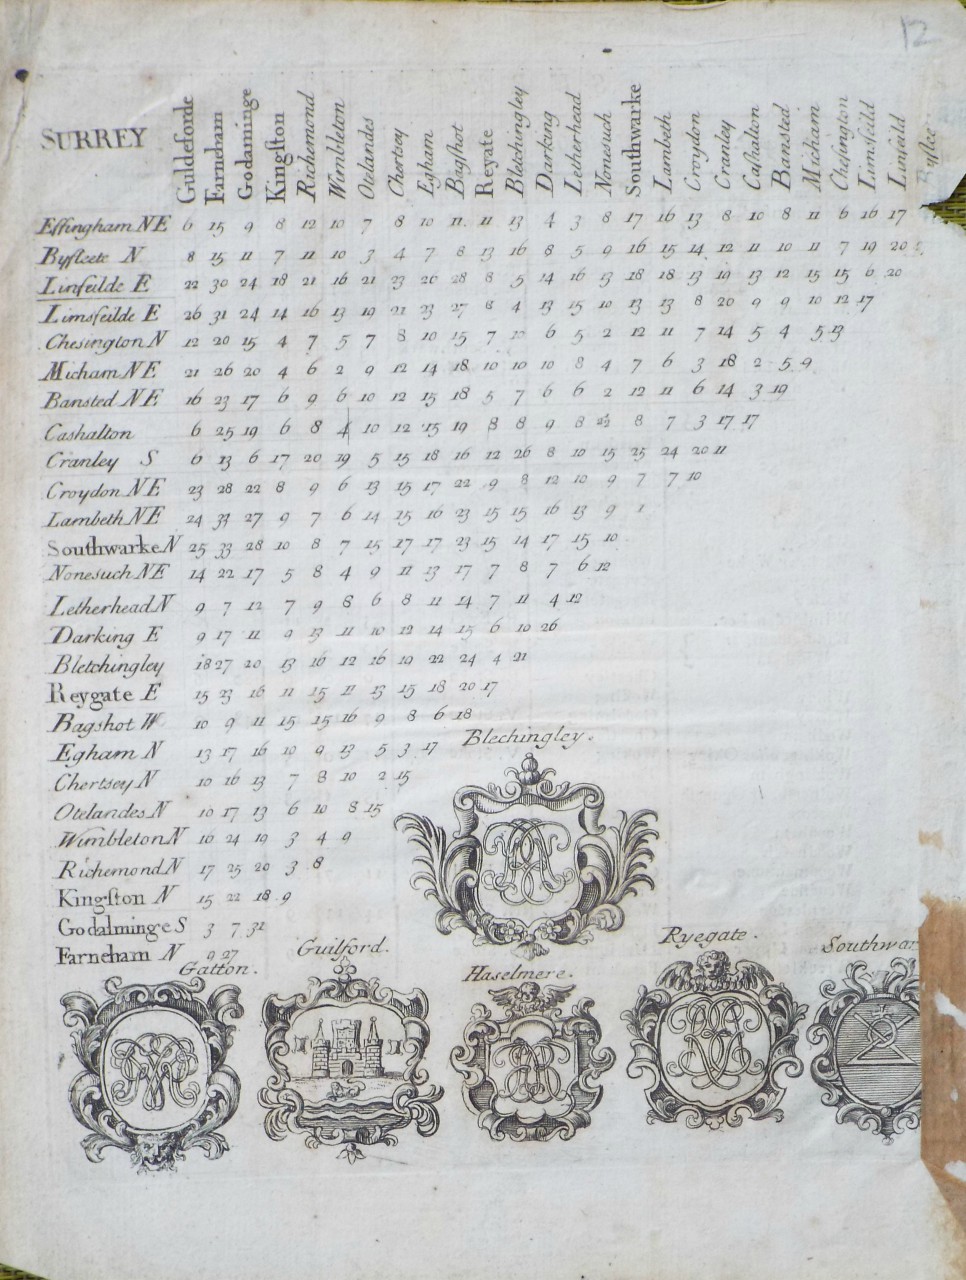 12
SURREY Guldeforde Farneham Godaminge Kingston Richemond Wimbleton Otelandes Chertsey Egham Bagshot Reyate Bletchingley Darking Letherhead Nonesuch Southwarke Lambeth Croydon Cranley Cashalton Bansted Micham Chesington Limsfeild Linfeild
Effingham NE 6 15 9 8 12 10 7 8 10 11 11 13 4 3 8 17 16 13 8 10 8 11 6 16 17
Byfleete N 8 15 11 7 11 10 3 4 7 8 13 16 8 5 9 16 15 14 12 11 10 11 7 19 20
Linfeilde E 22 30 24 18 21 16 21 23 26 28 8 5 14 16 13 18 18 13 19 13 12 15 15 6 20
Limsfeilde E 26 31 24 14 16 13 19 21 23 27 8 4 13 15 10 13 13 8 20 9 9 10 12 17
Chesington N 12 20 15 4 7 5 7 8 10 15 7 10 6 5 2 12 11 7 14 5 4 5 13
Micham NE 21 26 20 4 6 2 9 12 14 18 10 10 10 8 4 7 6 3 18 2 5 9
Bansted NE 16 23 17 6 9 6 10 12 15 18 5 7 6 6 2 12 11 6 14 3 19
Cashalton 6 25 19 6 8 4 10 12 15 19 8 8 9 8 2½ 8 7 3 17 17
Cranley S 6 13 6 17 20 19 5 15 18 16 12 26 8 10 15 25 24 20 11
Croydon NE 23 28 22 8 9 6 13 15 17 22 9 8 12 10 9 7 7 10
Lambeth NE 24 31 27 9 7 6 14 15 16 23 15 15 16 13 9 1
Southwarke N 25 33 28 10 8 7 15 17 17 23 15 14 17 15 10
Nonesuch NE 14 22 17 5 8 4 9 11 13 17 7 8 7 6 12
Letherhead N 9 7 12 7 9 8 6 8 11 14 7 11 4 12
Darking E 9 17 11 9 13 11 10 12 14 15 6 10 26
Bletchingley 18 27 20 13 16 12 16 19 22 24 4 21
Reygate E 15 23 16 11 15 11 13 15 18 20 17
Bagshot W 10 9 11 15 15 16 9 8 6 18
Egham N 13 17 16 10 9 13 5 3 17
Chertsey N 10 16 13 7 8 10 2 15
Otelandes N 10 17 13 6 10 8 15
Wimbleton N 16 24 19 3 4 9
Richemond N 17 25 20 3 8
Kingston N 15 22 18 9
Godalminge S 3 7 31
Farneham N 9 27
Blechingley.
Gatton.
Guilford.
Haselmere.
Ryegate.
Southwar